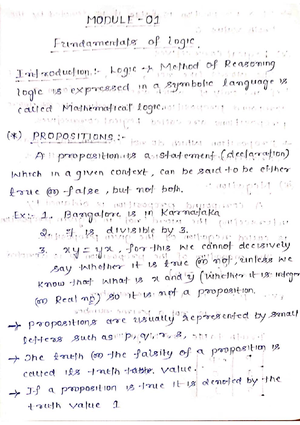 MODULE - 01
Fundamentals of Logic.
Introduction :- Logic is Method of Reasoning
logic is expressed in a symbolic language is
called Mathematical logic.
(*) PROPOSITIONS :-
A proposition is a statement (declaration)
which in a given context, can be said to be either
true (or) false, but not both.
Ex:- 1. Bangalore is in Karnataka
2. 7 is divisible by 3.
3. xy = yx, for this we cannot decisively
say whether it is true (or) not, unless we
know that what is x and y (whether it is integer
(or) Real no) so it is not a proposition.
→ propositions are usually represented by small
letters such as p, q, r, s,
→ The truth (or) the falsity of a proposition is
called its truth value.
→ If a proposition is true it is denoted by the
truth value 1